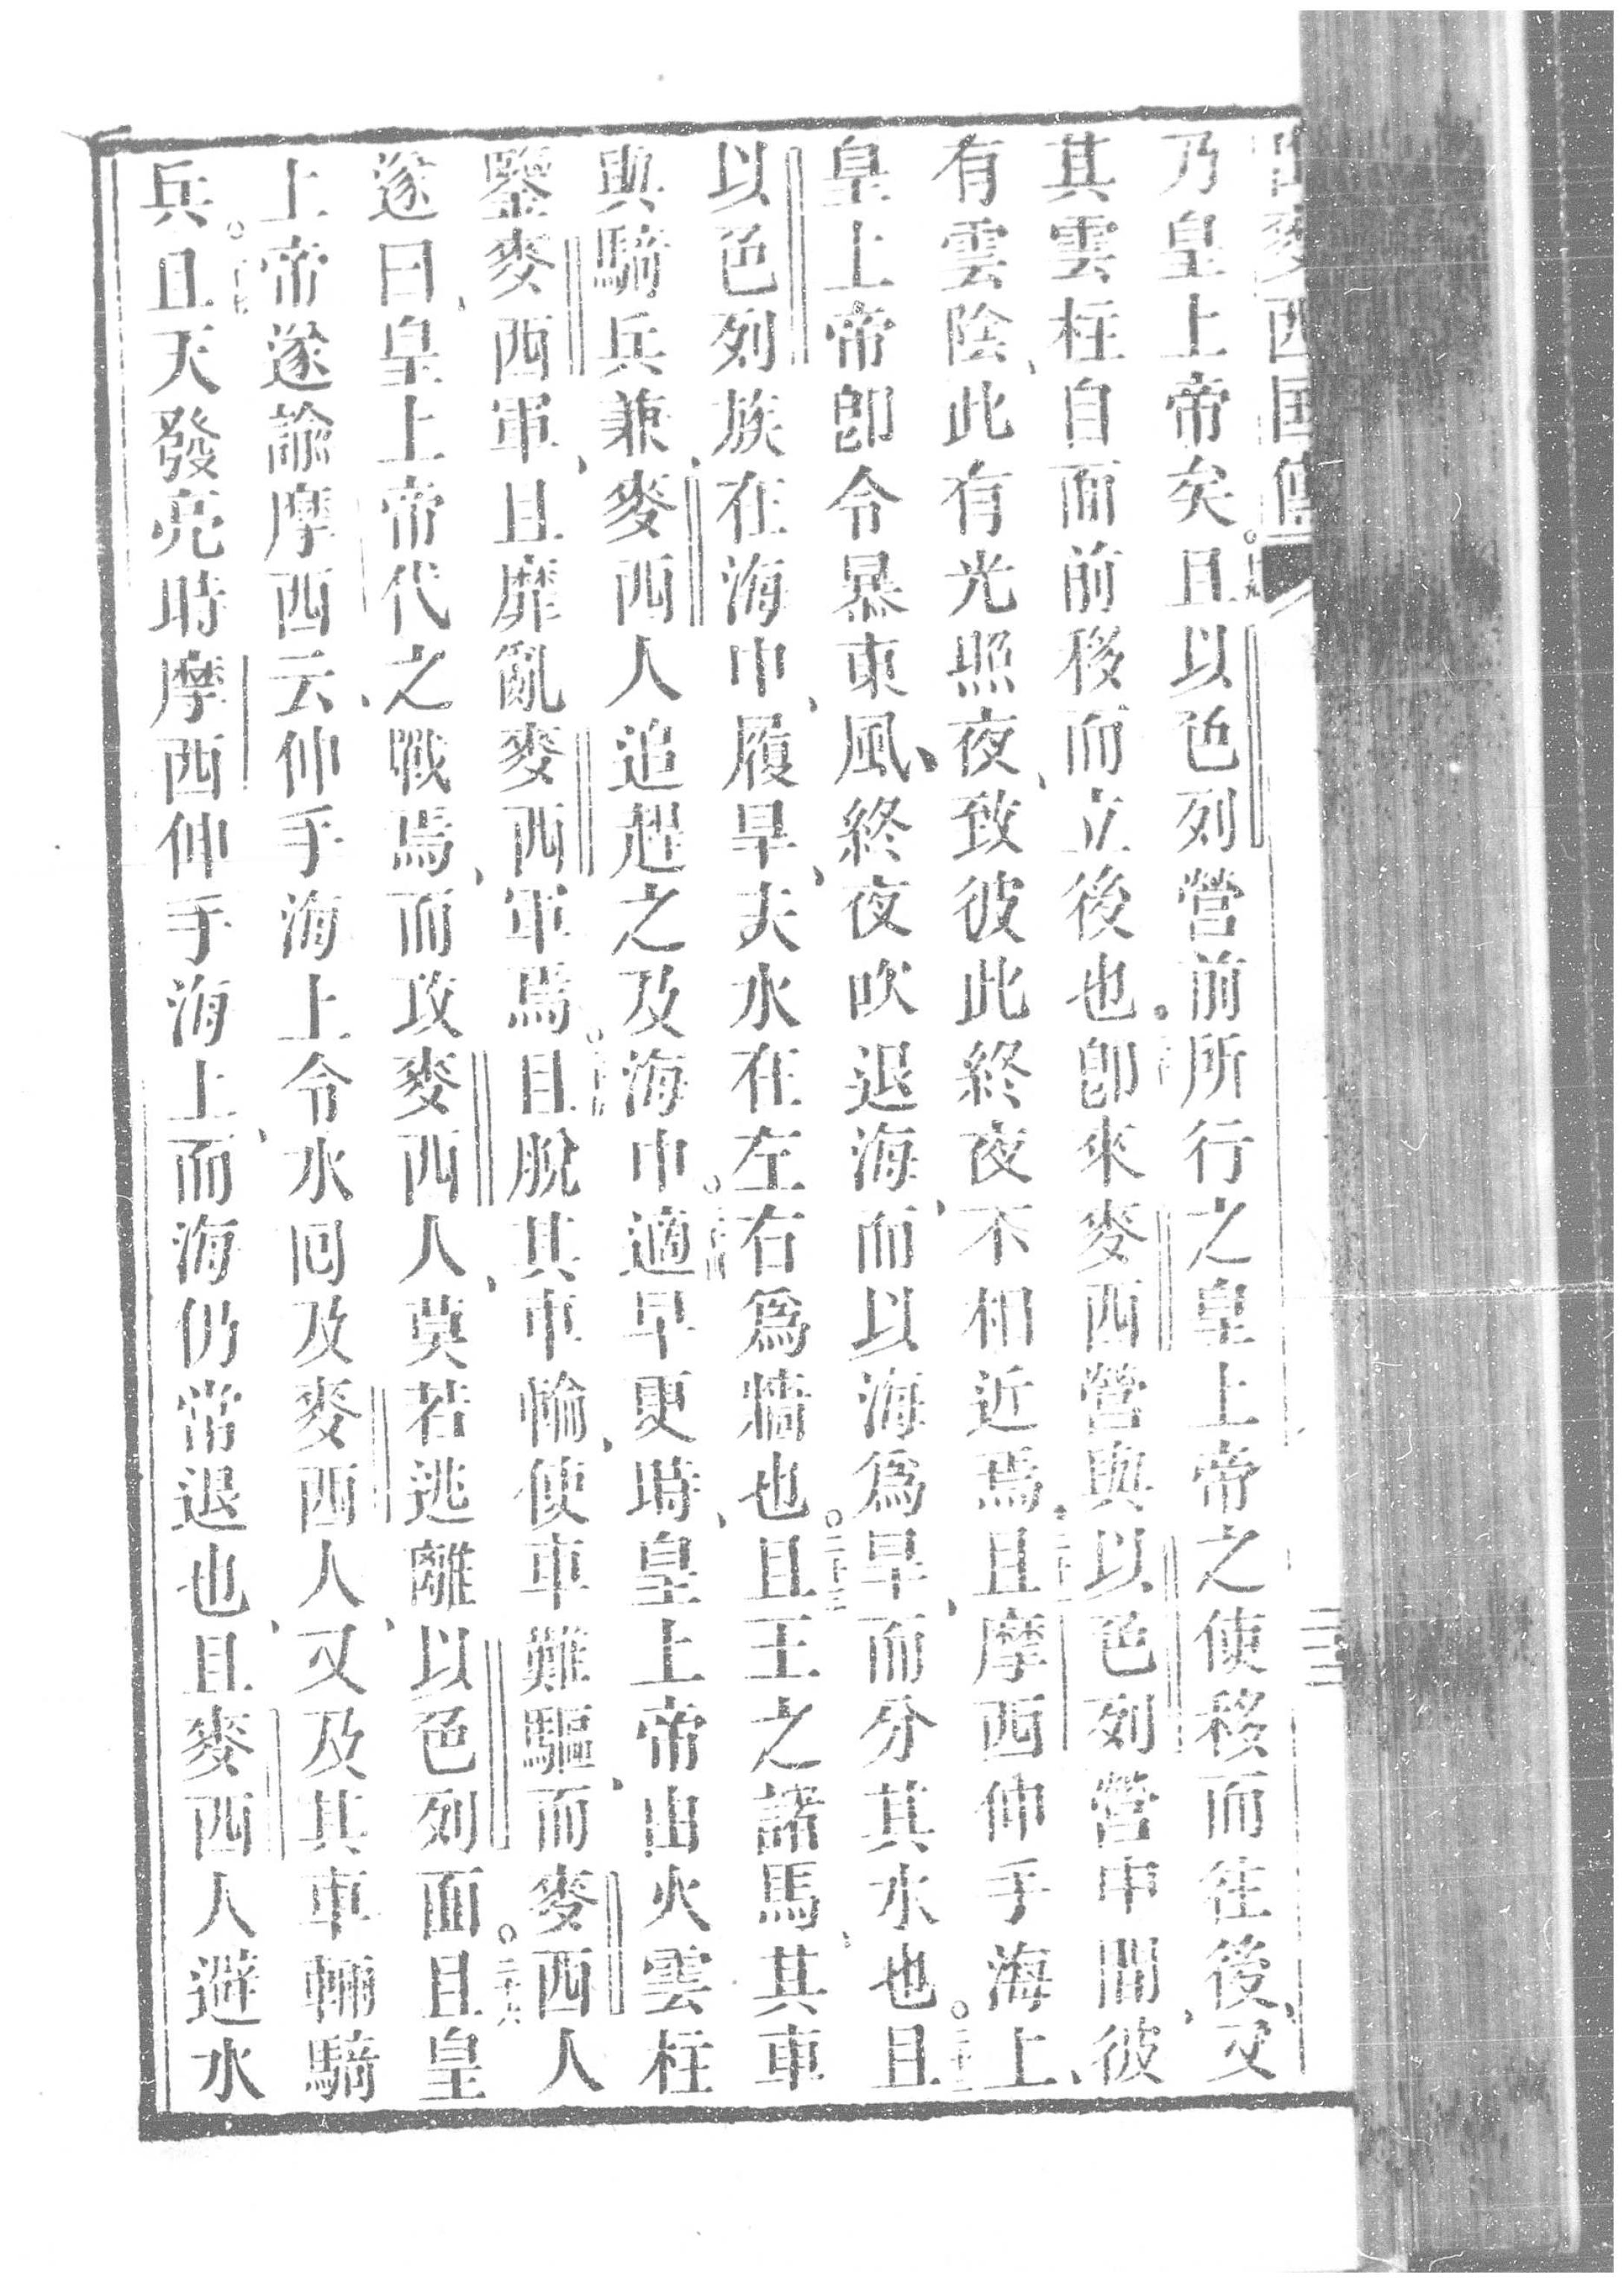 出麥西国傳
乃皇上帝矣。且以色列營前所行之皇上帝之使移而往後、又
其雲柱自而前移而立後也。卽來麥西營與以色列營中間、彼
有雲陰、此有光照夜、致彼此終夜不相近焉。且摩西伸手海上、
皇上帝卽令暴東風、終夜吹退海、而以海爲旱、而分其水也。且
以色列族在海中、履旱、夫水在左右爲牆也。且王之諸馬、其車
與騎兵、兼麥西人追趕之及海中。適早更時、皇上帝由火雲柱
鑒麥西軍、且靡亂麥西軍焉。且脫其車輪、使車難驅、而麥西人
遂曰、皇上帝代之戰焉、而攻麥西人、莫若逃離以色列面。二十六且皇
上帝遂諭摩西云、伸手海上令水囘及麥西人、又及其車輛騎
兵。且天發亮時摩西伸手海上、而海仍常退也、且麥西人避水
二三